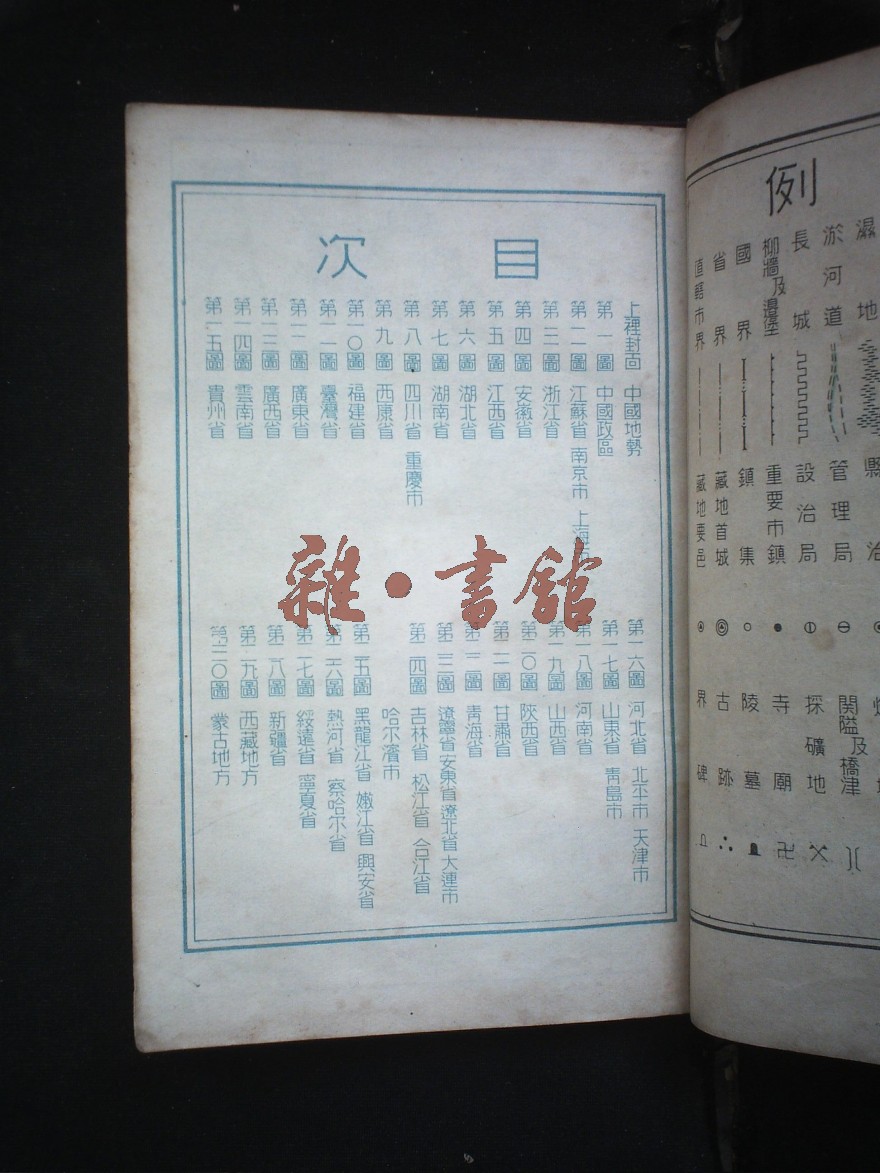 目次
上裡封面 中國地勢
第一圖 中國政區
第二圖 江蘇省 南京市 上海市
第三圖 浙江省
第四圖 安徽省
第五圖 江西省
第六圖 湖北省
第七圖 湖南省
第八圖 四川省 重慶市
第九圖 西康省
第一〇圖 福建省
第一一圖 臺灣省
第一二圖 廣東省
第一三圖 廣西省
第一四圖 雲南省
第一五圖 貴州省
第一六圖 河北省 北平市 天津市
第一七圖 山東省 青島市
第一八圖 河南省
第一九圖 山西省
第二〇圖 陝西省
第二一圖 甘肅省
第二二圖 青海省
第二三圖 遼寧省 安東省 遼北省 大連市
第二四圖 吉林省 松江省 合江省
哈尔濱市
第二五圖 黑龍江省 嫩江省 興安省
第二六圖 熱河省 察哈尔省
第二七圖 綏遠省 寧夏省
第二八圖 新疆省
第二九圖 西藏地方
第三〇圖 蒙古地方
雜·書館
例
濕地
縣治
淤河道
管理局
關隘及橋津
長城
設治局
採礦地
柳牆及邊堡
重要市鎮
寺廟
國界
鎮集
陵墓
省界
藏地首城
古跡
直轄市界
藏地要邑
界碑